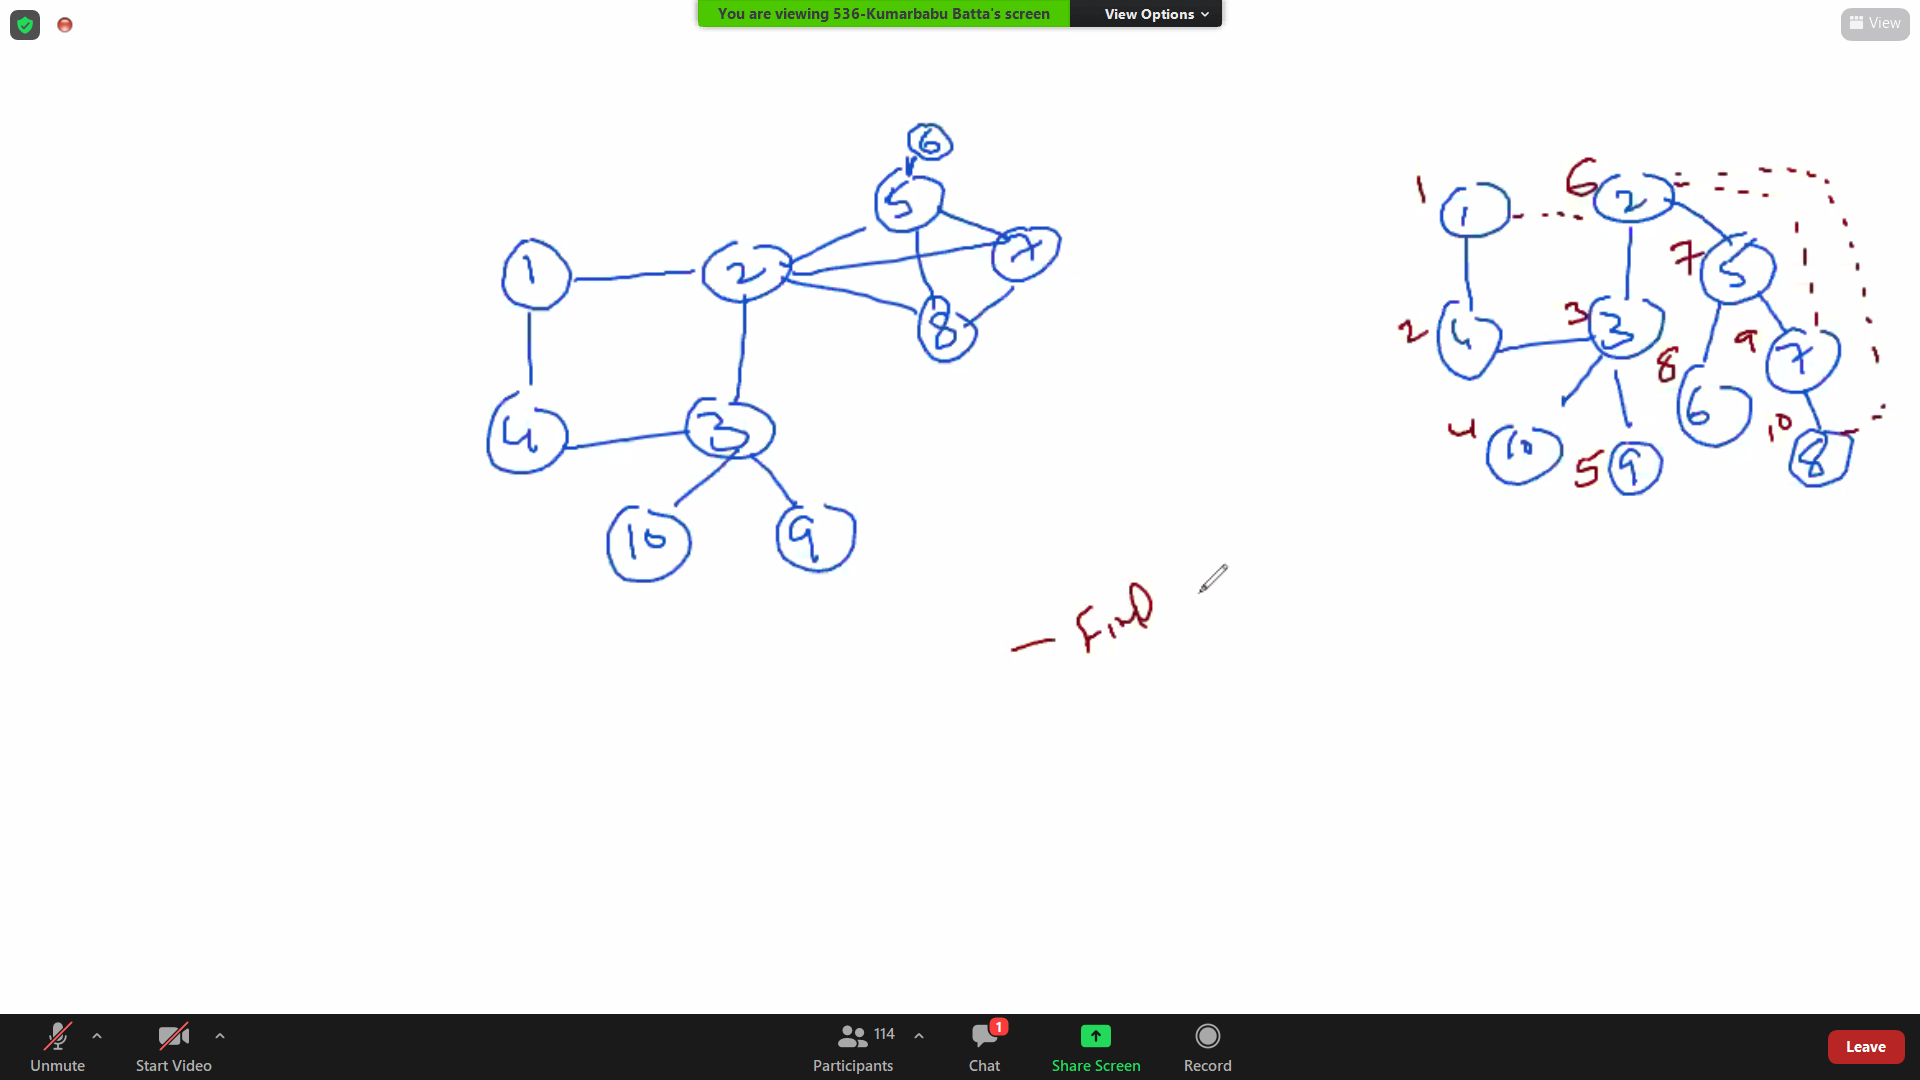 You are viewing 536-Kumarbabu Batta's screen View Options
View
6
5
1 2 7
8
4 3
10 9
1 1 6 2
7 5
2 4 3 3
8 6 9 7
4 10 5 9 10 8
— Find
Unmute Start Video Participants 114 Chat 1 Share Screen Record Leave